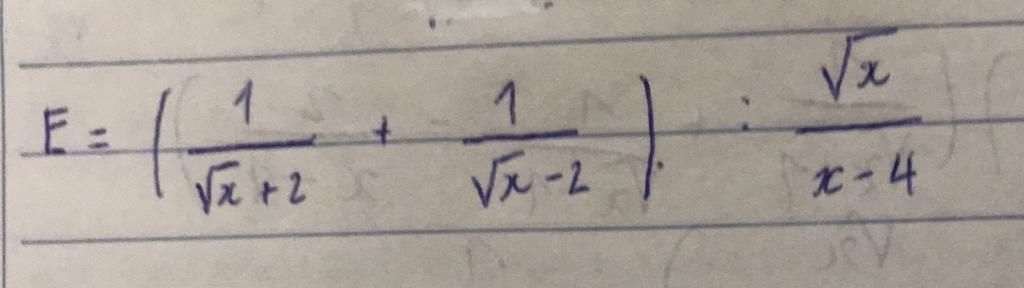 E = ( 1/(√x + 2) + 1/(√x - 2) ) : √x/(x - 4)